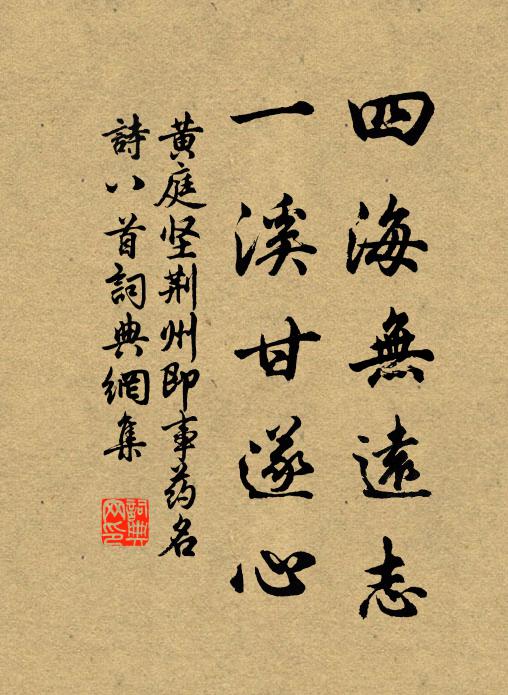 四海無遠志
一溪甘遂心
黄庭坚荆州即事药名
詩八首詞典網集
詞典网印